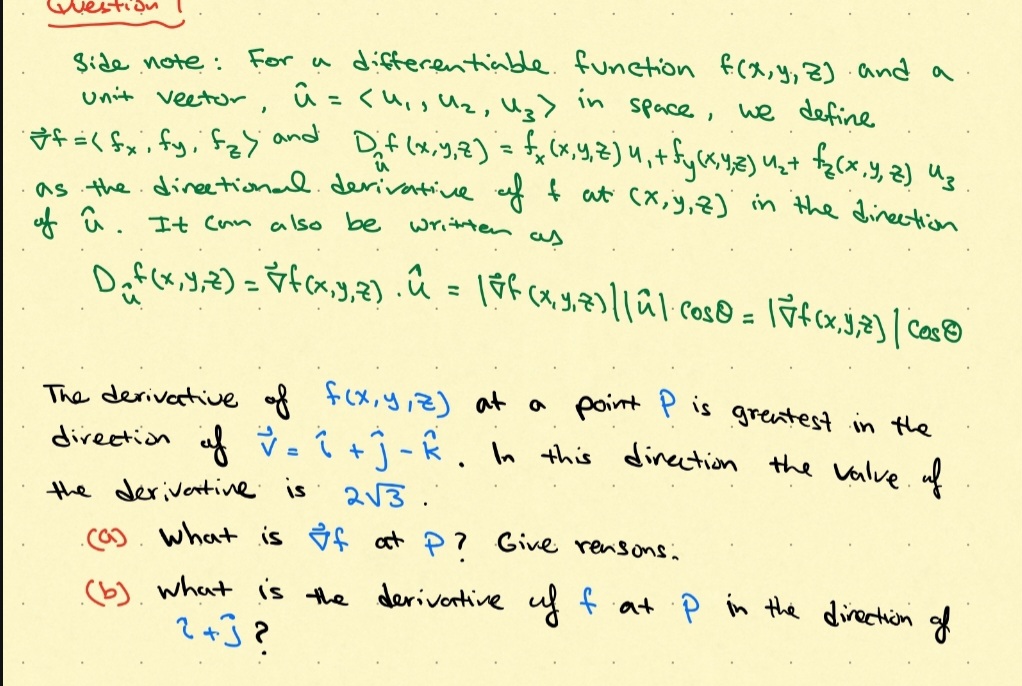 Question 1
Side note: For a differentiable function f(x,y,z) and a
unit vector, û = <u₁, u₂, u₃> in space, we define
∇⃗f = <fₓ, fᵧ, f_z> and D_û f(x,y,z) = fₓ(x,y,z) u₁ + fᵧ(x,y,z) u₂ + f_z(x,y,z) u₃
as the directional derivative of f at (x,y,z) in the direction
of û. It can also be written as
D_û f(x,y,z) = ∇⃗f(x,y,z) . û = |∇⃗f(x,y,z)||û|.cosΘ = |∇⃗f(x,y,z)| cosΘ
The derivative of f(x,y,z) at a point P is greatest in the
direction of v⃗ = î + ĵ - k̂. In this direction the value of
the derivative is 2√3.
(a) What is ∇⃗f at P? Give reasons.
(b) What is the derivative of f at P in the direction of
î + ĵ?